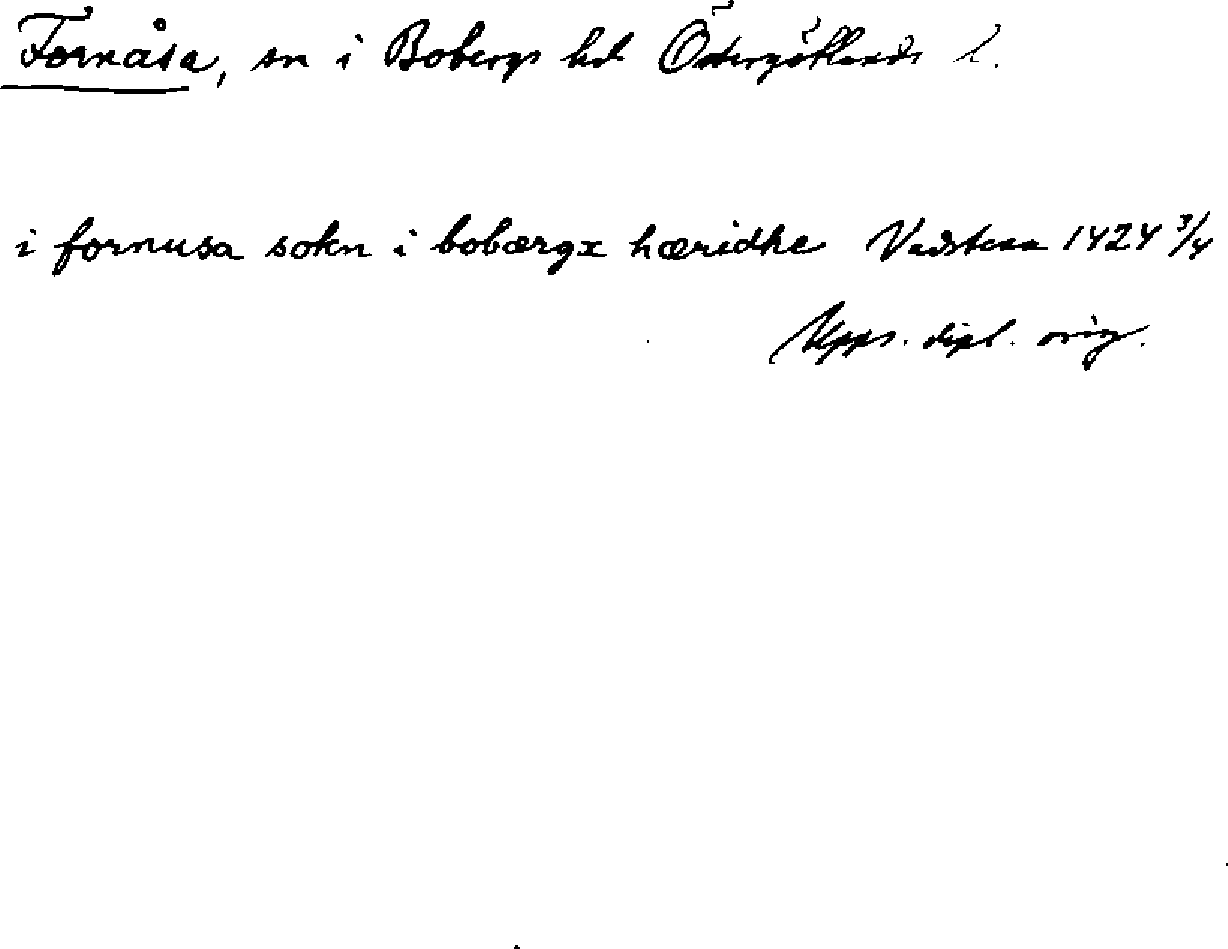 Fornåsa, sn i Bobergs hd Östergötlands l.
i fornusa sokn i bobærgx hæridhe Vadstena 1424 3/4
Upps. dipl. orig.